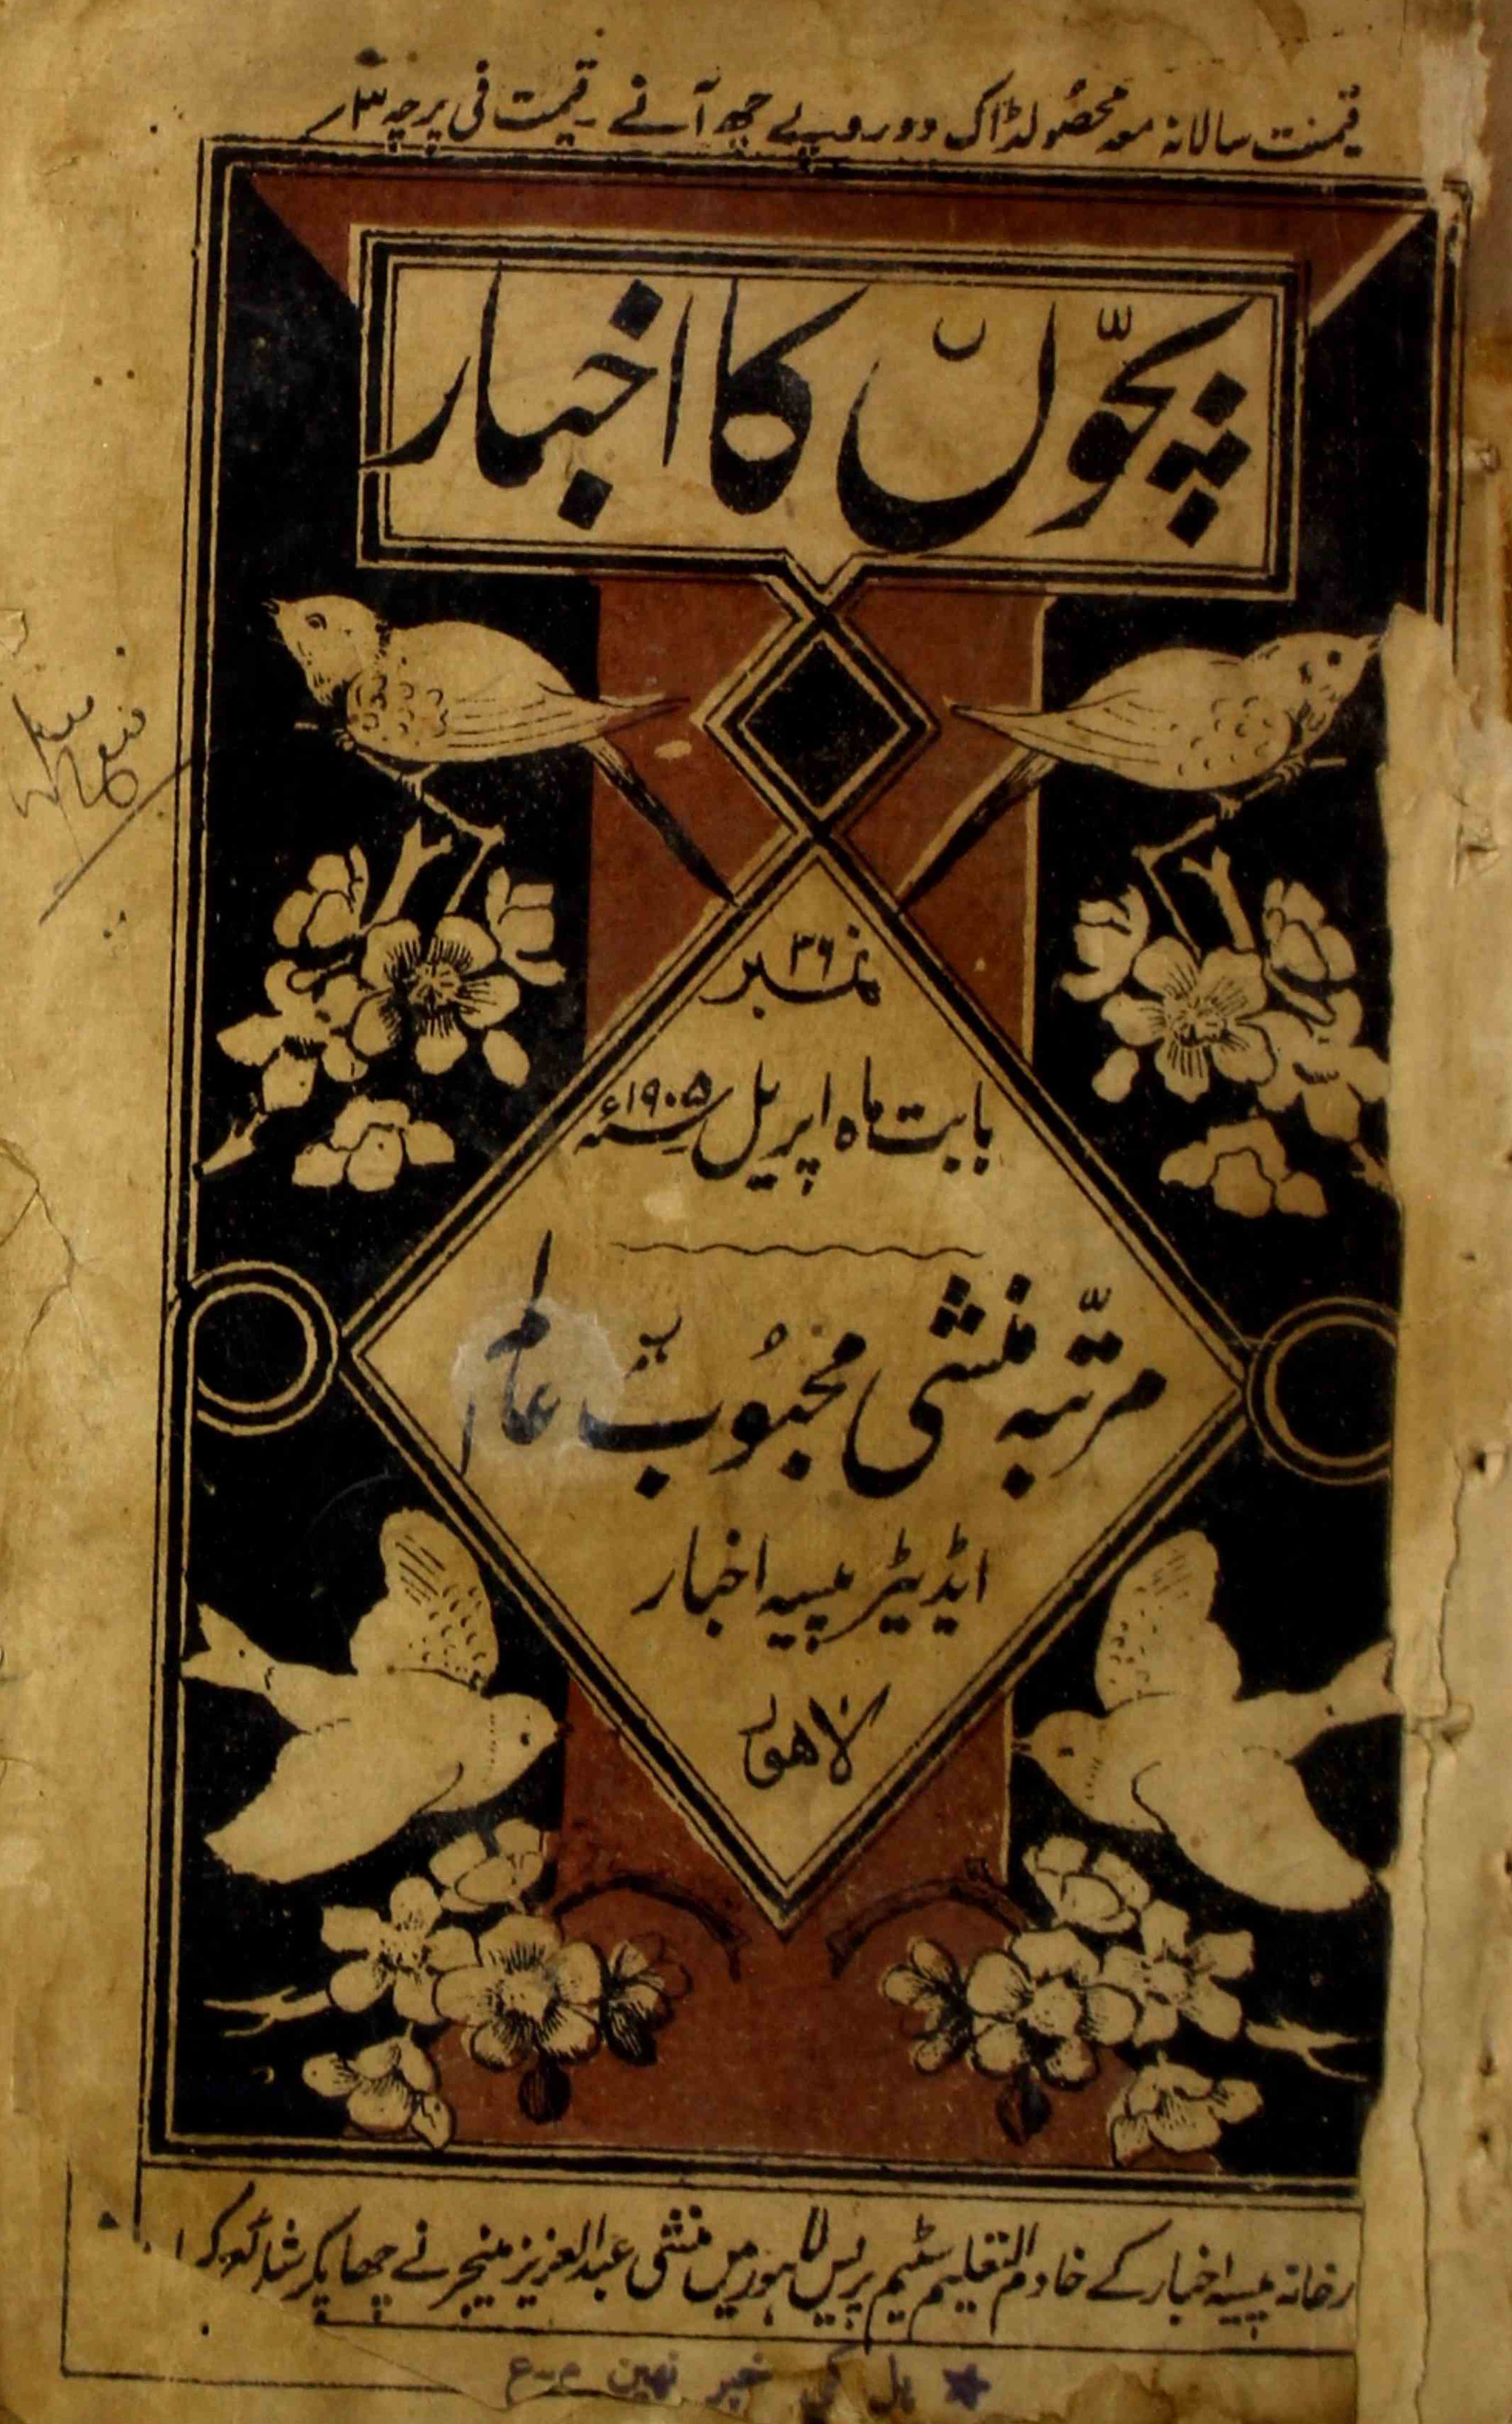 قیمت سالانہ معہ محصولڈاک دو روپے چھ آنے ۔ قیمت فی پرچہ ۳؍
بچّوں کا اخبار
نمبر ۳۶
بابت ماہ اپریل سنہ ۱۹۰۵ء
مرتّبہ منشی محبُوب عالم
ایڈیٹر پیسہ اخبار
لاہور
رخانہ پیسہ اخبار کے خادم التعلیم سٹیم پریس لاہور میں منشی عبدالعزیز منیجر نے چھاپکر شائع کیا
کل کی خبر نہین